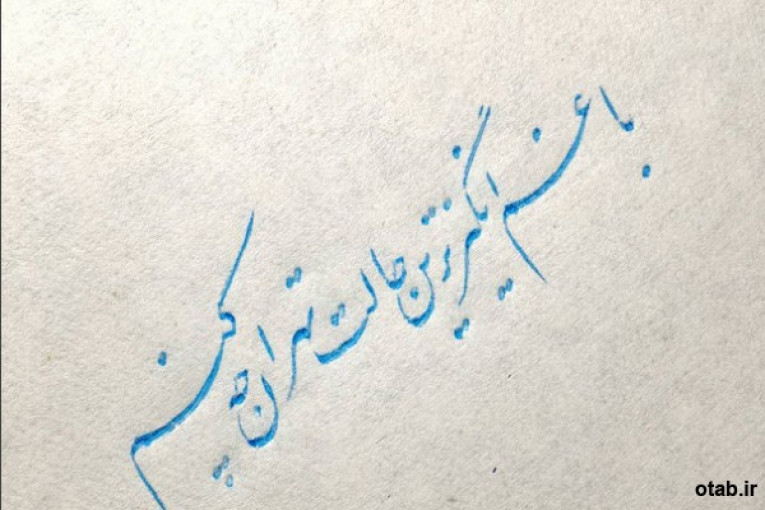 با غم انگیزترین حالت تهران چه کنم
otab.ir